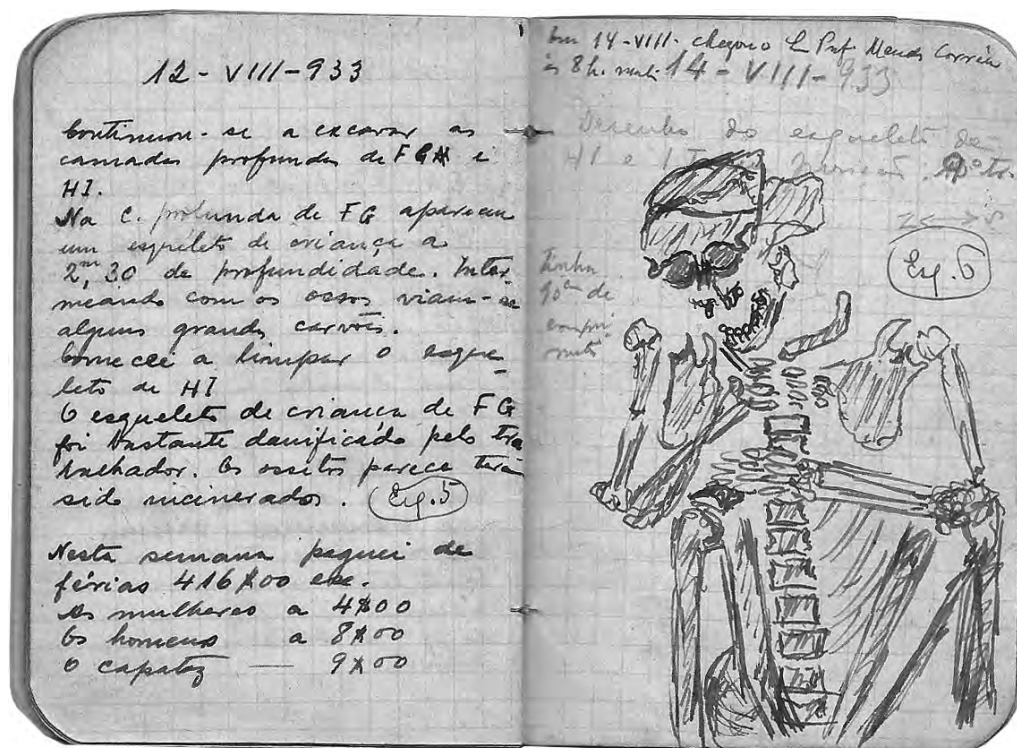 12 - VIII - 933
Continuou-se a excavar as
camadas profundas de FGH e
HI.
Na C. profunda de FG apareceu
um esqueleto de criança a
2,m30 de profundidade. Inter-
meando com os ossos viam-se
alguns grandes carvões.
Comecei a limpar o esque-
leto de HI
O esqueleto de criança de FG
foi bastante danificado pelo tra
balhador. Os ossitos parece terem
sido incinerados. Esq. 5
Nesta semana paguei de
férias 416$00 esc.
As mulheres a 4$00
Os homens a 8$00
O capataz — 9$00
Em 14-VIII- chegou o Prof. Mendes Corrêa
às 8 h.
14 - VIII - 933
Desenho do esqueleto de
HI e
Esq. 6
Tinha
90cm de
compri
mento